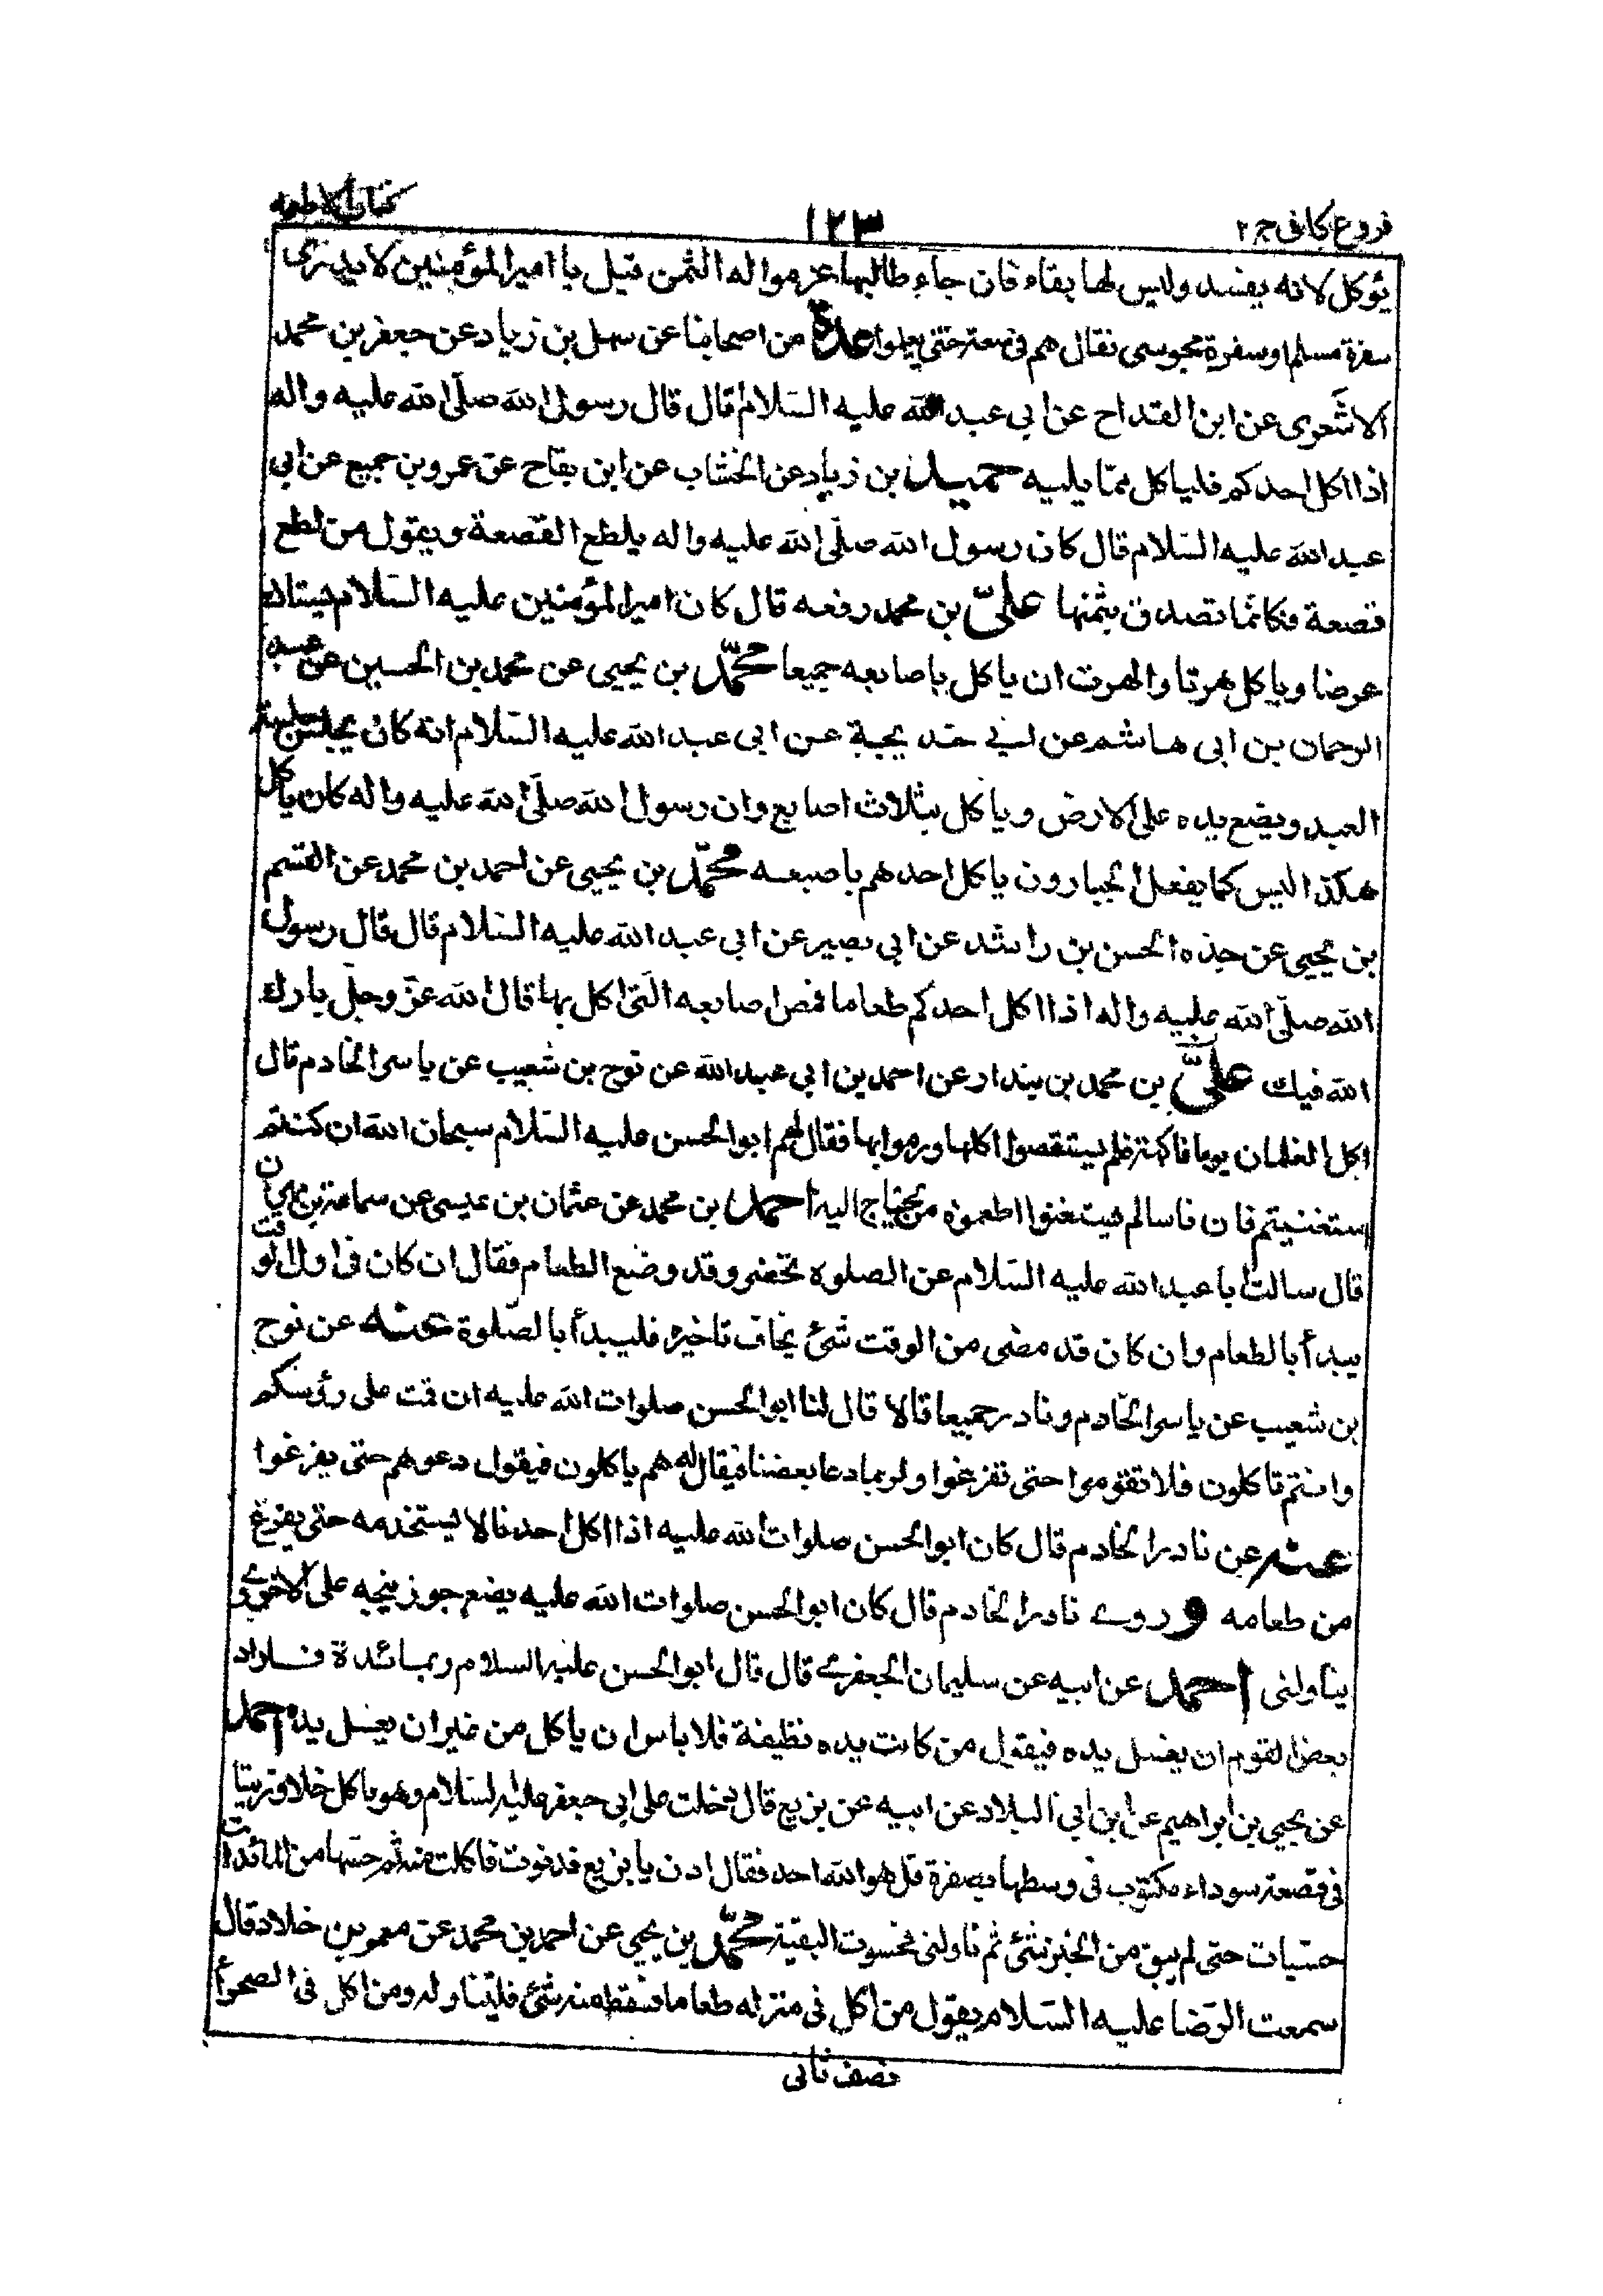 فروع كافى ج ٢
١٢٣
كتاب الاطعمه
يؤكل لانه يفسد وليس لها بقاء فان جاء طالبها غرموا له الثمن قيل يا امير المؤمنين لا يدرى
سفرة مسلم او سفرة مجوسى فقال هم فى سعة حتى يعلموا عدة من اصحابنا عن سهل بن زياد عن جعفر بن محمد
الاشعرى عن ابن القداح عن ابى عبد الله عليه السلام قال قال رسول الله صلى الله عليه واله
اذا اكل احدكم فلياكل مما يليه حميد بن زياد عن الخشاب عن ابن بقاح عن عمرو بن جميع عن ابى
عبد الله عليه السلام قال كان رسول الله صلى الله عليه واله يلطع القصعة ويقول من لطع
قصعة فكانما تصدق بثمنها على بن محمد رفعه قال كان امير المؤمنين عليه السلام يستاك
عرضا وياكل هرتا والهرت ان ياكل باصابعه جميعا محمد بن يحيى عن محمد بن الحسين عن عبد
الرحمان بن ابى هاشم عن ابى خديجة عن ابى عبد الله عليه السلام انه كان يجلس جلسة
العبد ويضع يده على الارض وياكل بثلاث اصابع وان رسول الله صلى الله عليه واله كان ياكل
هكذا ليس كما يفعل الجبارون ياكل احدهم باصبعه محمد بن يحيى عن احمد بن محمد عن القسم
بن يحيى عن جده الحسن بن راشد عن ابى بصير عن ابى عبد الله عليه السلام قال قال رسول
الله صلى الله عليه واله اذا اكل احدكم طعاما فمص اصابعه التى اكل بها قال الله عز وجل بارك
الله فيك على بن محمد بن بندار عن احمد بن ابى عبد الله عن نوح بن شعيب عن ياسر الخادم قال
اكل الغلمان يوما فاكهة فلم يستقصوا اكلها ورموا بها فقال لهم ابو الحسن عليه السلام سبحان الله ان كنتم
استغنيتم فان ناسا لم يستغنوا اطعموه من يحتاج اليه احمد بن محمد عن عثمان بن عيسى عن سماعة بن مهران
قال سالت ابا عبد الله عليه السلام عن الصلوة تحضر وقد وضع الطعام فقال ان كان فى اول الوقت
يبدأ بالطعام وان كان قد مضى من الوقت شئ يخاف تاخيره فليبدأ بالصلوة عنه عن نوح
بن شعيب عن ياسر الخادم ونادر جميعا قالا قال لنا ابو الحسن صلوات الله عليه ان قمت على رؤسكم
وانتم تاكلون فلا تقوموا حتى تفرغوا ولربما دعا بعضنا فيقال له هم ياكلون فيقول دعوهم حتى يفرغوا
عنه عن نادر الخادم قال كان ابو الحسن صلوات الله عليه اذا اكل احدنا لا يستخدمه حتى يفرغ
من طعامه وروى نادر الخادم قال كان ابو الحسن صلوات الله عليه يضع جوزينجه على الاخرى و
يناولنى احمد عن ابيه عن سليمان الجعفرى قال قال ابو الحسن عليه السلام ربما
بعض القوم ان يغسل يده فيقول من كانت يده نظيفة فلا باس ان ياكل من غير ان يغسل يده احمد
عن يحيى بن ابراهيم عن ابن ابى البلاد عن ابيه عن بزيع قال دخلت على ابى جعفر عليه السلام وهو ياكل خلا وزيتا
فى قصعة سوداء مكتوب فى وسطها بصفرة قل هو الله احد فقال ادن يا بزيع فدنوت فاكلت معه ثم حسا من الماء ثلث
حسيات حتى لم يبق من الخبز شئ ثم ناولنى فحسوت البقية محمد بن يحيى عن احمد بن محمد عن معمر بن خلاد قال
سمعت الرضا عليه السلام يقول من اكل فى منزله طعاما فسقط منه شئ فليتناوله ومن اكل فى الصحرأ
نصف ثانى